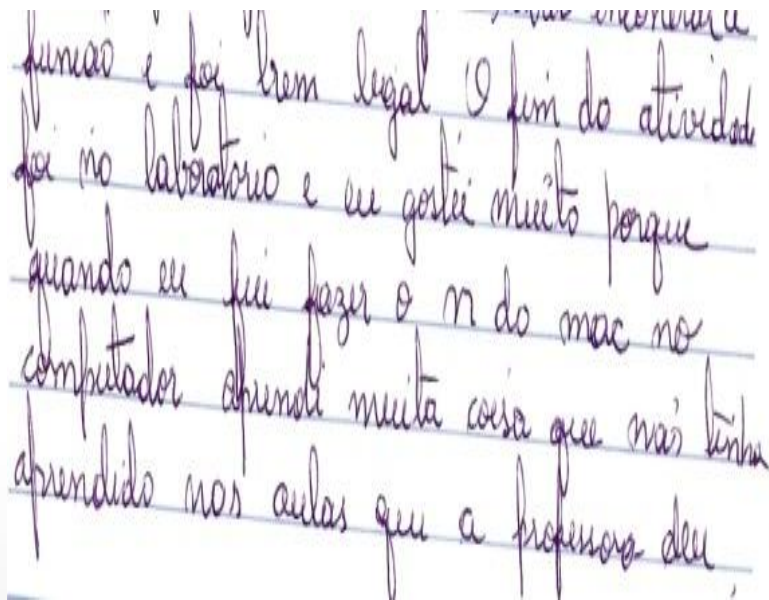 função e foi bem legal O fim do atividade
foi no laboratório e eu gostei muito porque
quando eu fui fazer o n do mac no
computador aprendi muita coisa que não tinha
aprendido nas aulas que a professora deu.